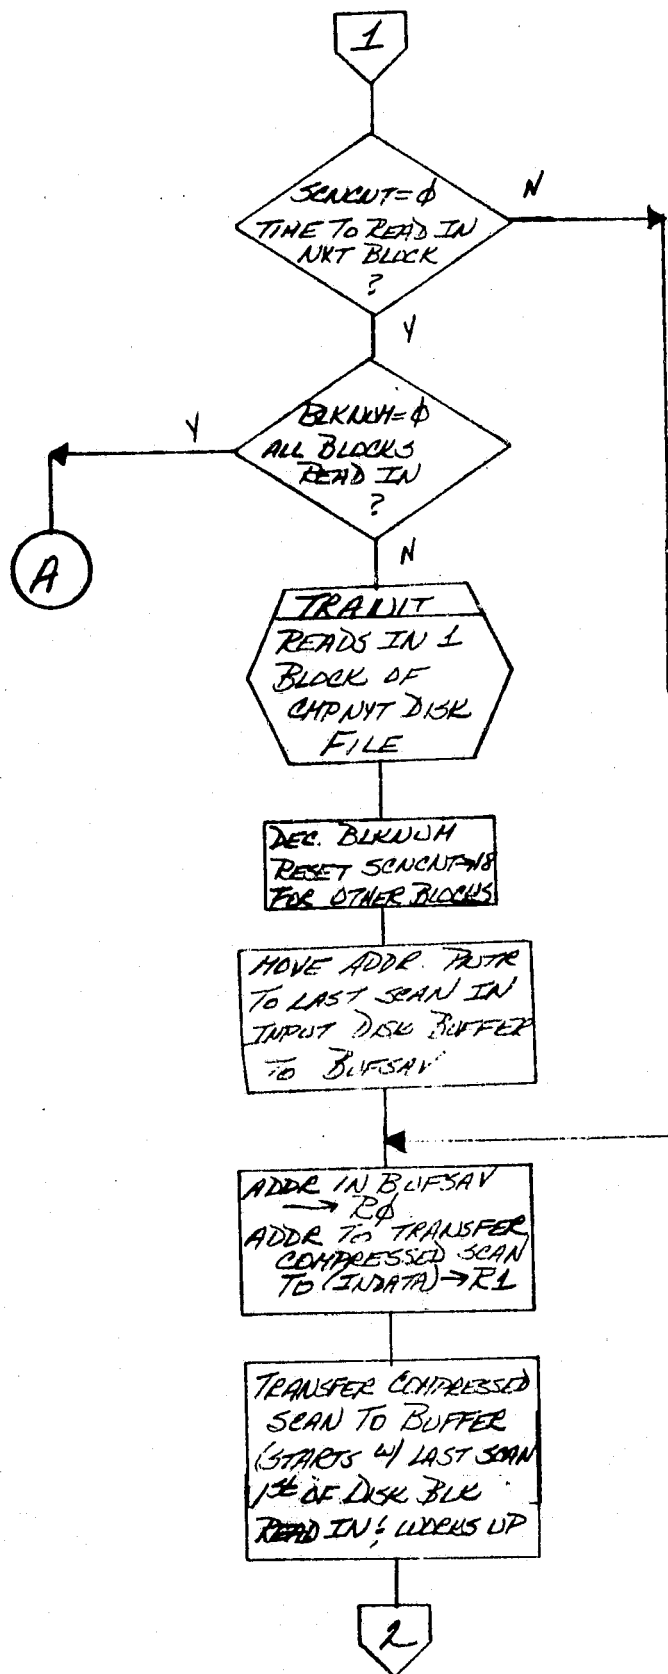 1
SCNCNT=φ
TIME TO READ IN
NXT BLOCK
?
N
Y
BLKNUM=φ
ALL BLOCKS
READ IN
?
Y
A
N
TRANIT
READS IN 1
BLOCK OF
DISK
FILE
DEC. BLKNUM
RESET SCNCNT=18
FOR OTHER BLOCKS
MOVE ADDR. PNTR
TO LAST SCAN IN
INPUT DISK BUFFER
TO BUFSAV
ADDR IN BUFSAV
→ Rφ
ADDR TO TRANSFER
COMPRESSED SCAN
TO (INDATA)→R1
TRANSFER COMPRESSED
SCAN TO BUFFER
(STARTS W/ LAST SCAN
1st OF DISK BLK
READ IN & WORKS UP
2